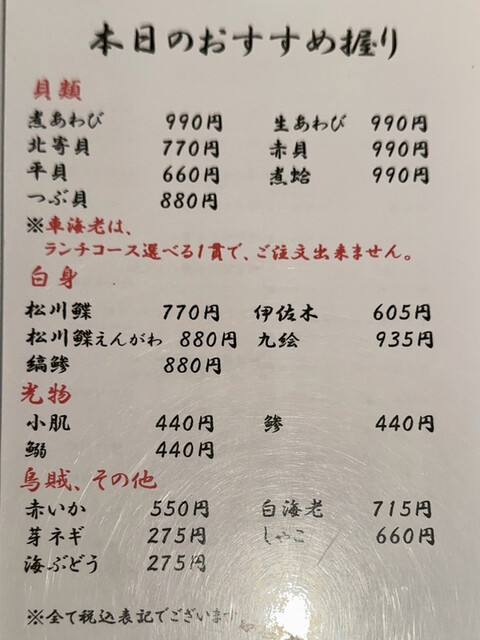 本日のおすすめ握り
貝類
煮あわび 990円 生あわび 990円
北寄貝 770円 赤貝 990円
平貝 660円 煮蛤 990円
つぶ貝 880円
※車海老は、
ランチコース選べる1貫で、ご注文出来ません。
白身
松川鰈 770円 伊佐木 605円
松川鰈えんがわ 880円 九絵 935円
縞鯵 880円
光物
小肌 440円 鯵 440円
鰯 440円
烏賊、その他
赤いか 550円 白海老 715円
芽ネギ 275円 しゃこ 660円
海ぶどう 275円
※全て税込表記でございます